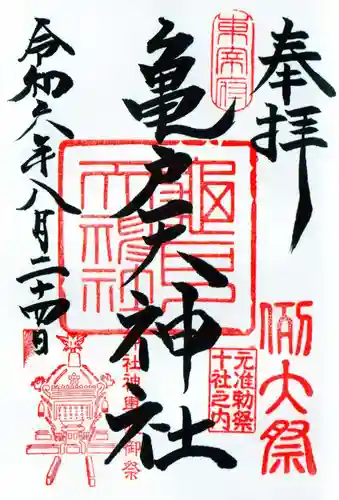 奉拝
東宰府
亀戸天神社
亀戸天神社
例大祭
元准勅祭
十社之内
社神輿
御祭
令和六年八月二十四日